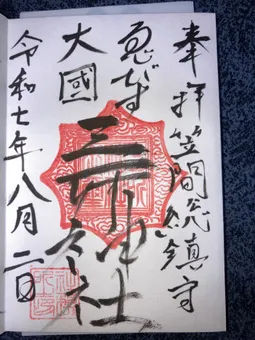 奉拝 笠間 総鎮守
ゑびす
大國
三所神社
令和七年八月二日